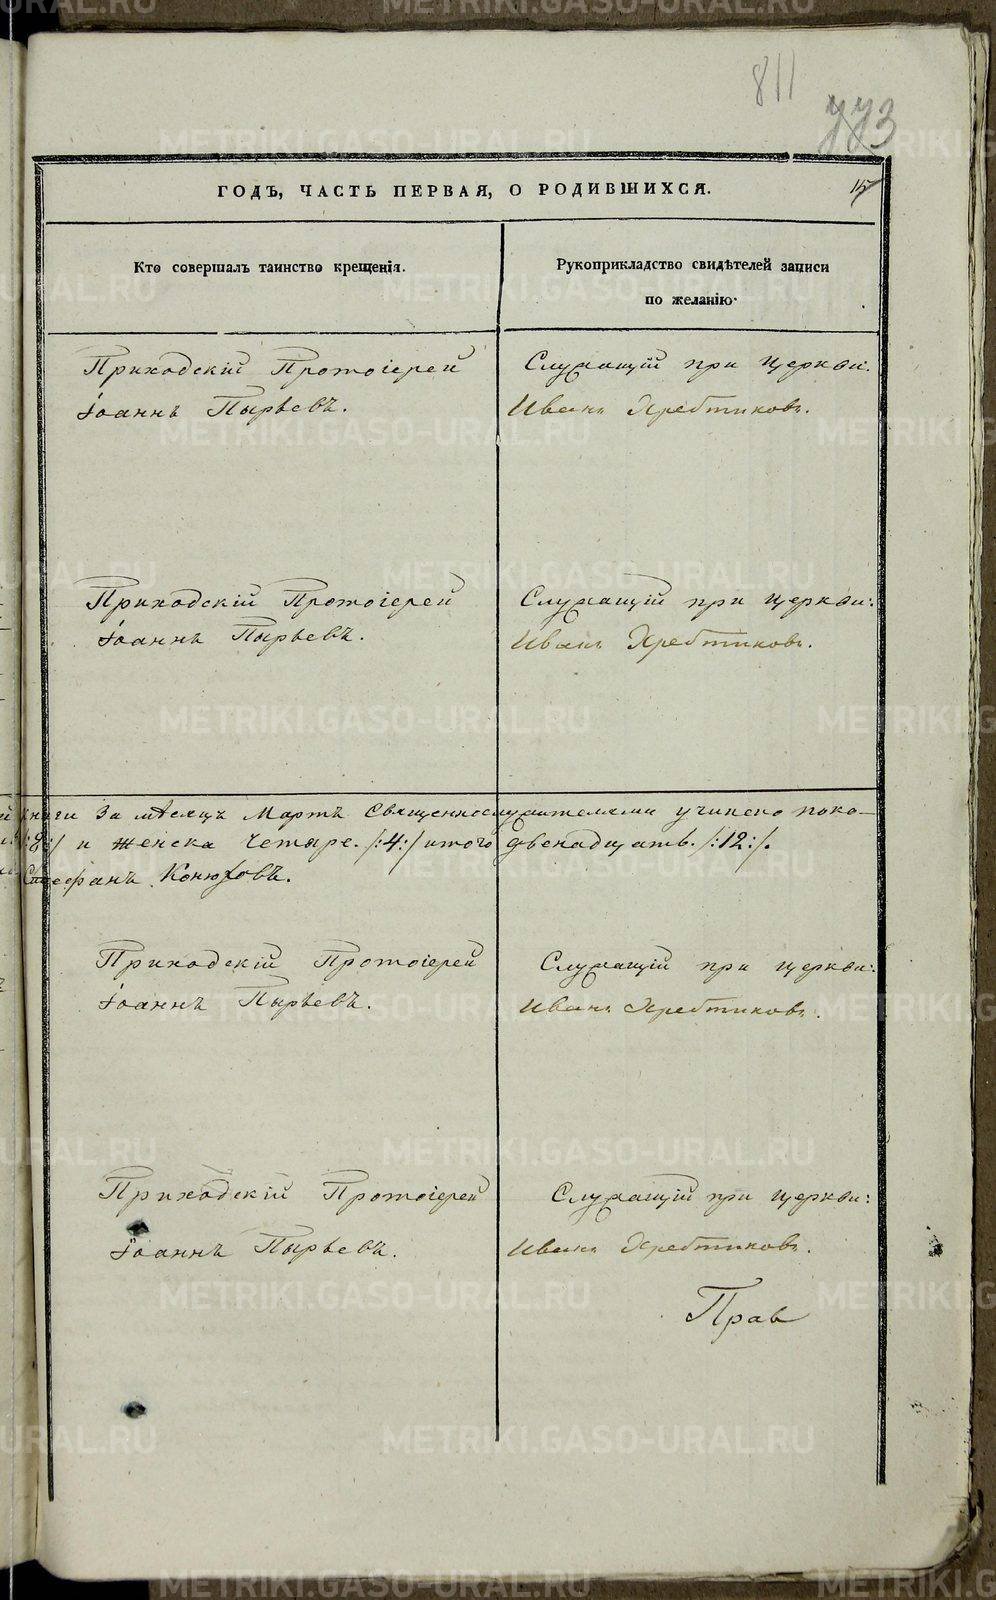 811
773
ГОДЪ, ЧАСТЬ ПЕРВАЯ, О РОДИВШИХСЯ.
Кто совершалъ таинство крещенія.
Рукоприкладство свидѣтелей записи
по желанію.
Приходскій Протоіерей
Іоаннъ Пырьевъ.
Служащій при церкви:
Иванъ Хребтиковъ.
Приходскій Протоіерей
Іоаннъ Пырьевъ.
Служащій при церкви:
Иванъ Хребтиковъ.
книги за мѣсяцъ Мартъ Священнослужителями учинено пока-
/:8:/ и женска четыре. /:4:/ итого двенадцать. /:12:/.
Стефанъ Конюховъ.
Приходскій Протоіерей
Іоаннъ Пырьевъ.
Служащій при церкви:
Иванъ Хребтиковъ.
Приходскій Протоіерей
Іоаннъ Пырьевъ.
Служащій при церкви:
Иванъ Хребтиковъ.
Прав